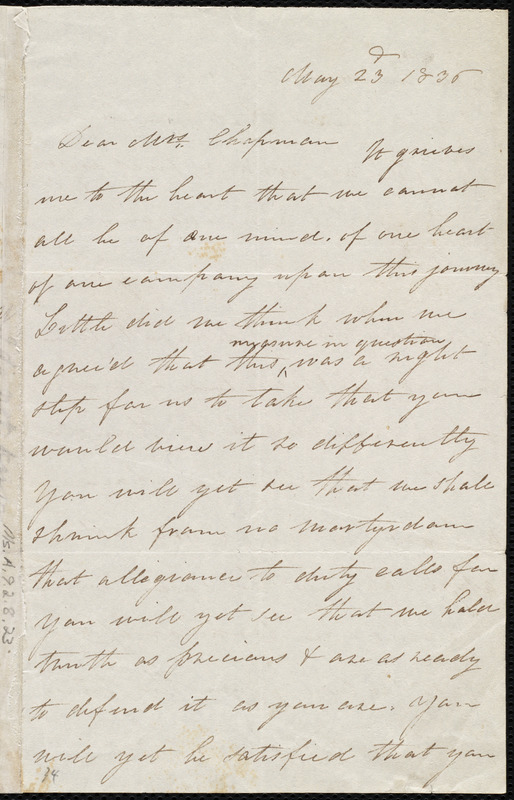 May 23d 1836
Dear Mrs. Chapman It grieves
me to the heart that we cannot
all be of one mind. of one heart
of one company upon this journey.
Little did we think when we
measure in question
agree'd that this ^ was a right
step for us to take that you
would view it so differently
You will yet see that we shall
shrink from no martyrdom
that allegiance to duty calls for
You will yet see that we hold
truth as precious & are as ready
to defend it as you are. You
will yet be satisfied that you
34
Ms.A.9.2.8.23.